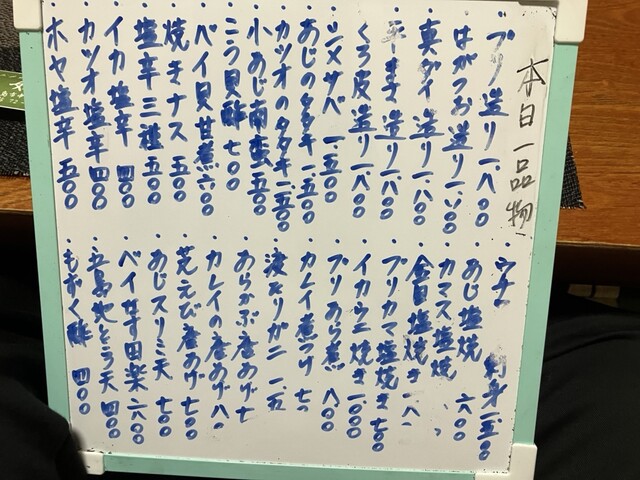 本日一品物
・ブリ造り 一、八〇〇
・はがつお造り 一、八〇〇
・真ダイ造り 一、八〇〇
・造り 一、八〇〇
・くろ皮造り 一、八〇〇
・シメサバ 一、五〇〇
・あじのタタキ 一、五〇〇
・カツオのタタキ 一、五〇〇
・小あじ南蛮 五〇〇
・ニラ貝酢 七〇〇
・ベイ貝甘煮 六〇〇
・焼きナス 五〇〇
・塩辛三種 五〇〇
・イカ塩辛 四〇〇
・カツオ塩辛 四〇〇
・ホヤ塩辛 五〇〇
・刺身 一、五〇〇
・あじ塩焼 六〇〇
・カマス塩焼
・金目塩焼き 一、八
・ブリカマ塩焼き 七〇〇
・イカウニ焼き 一、〇〇〇
・ブリあら煮 八〇〇
・カレイ煮つけ 七
・渡りガニ 一、五
・あらかぶ唐あげ 七
・カレイの唐あげ 八
・芝えび唐あげ 七〇〇
・あじスリミ天 七〇〇
・ベイなす田楽 六〇〇
・五島地とうふ天 四〇〇
・もずく酢 四〇〇